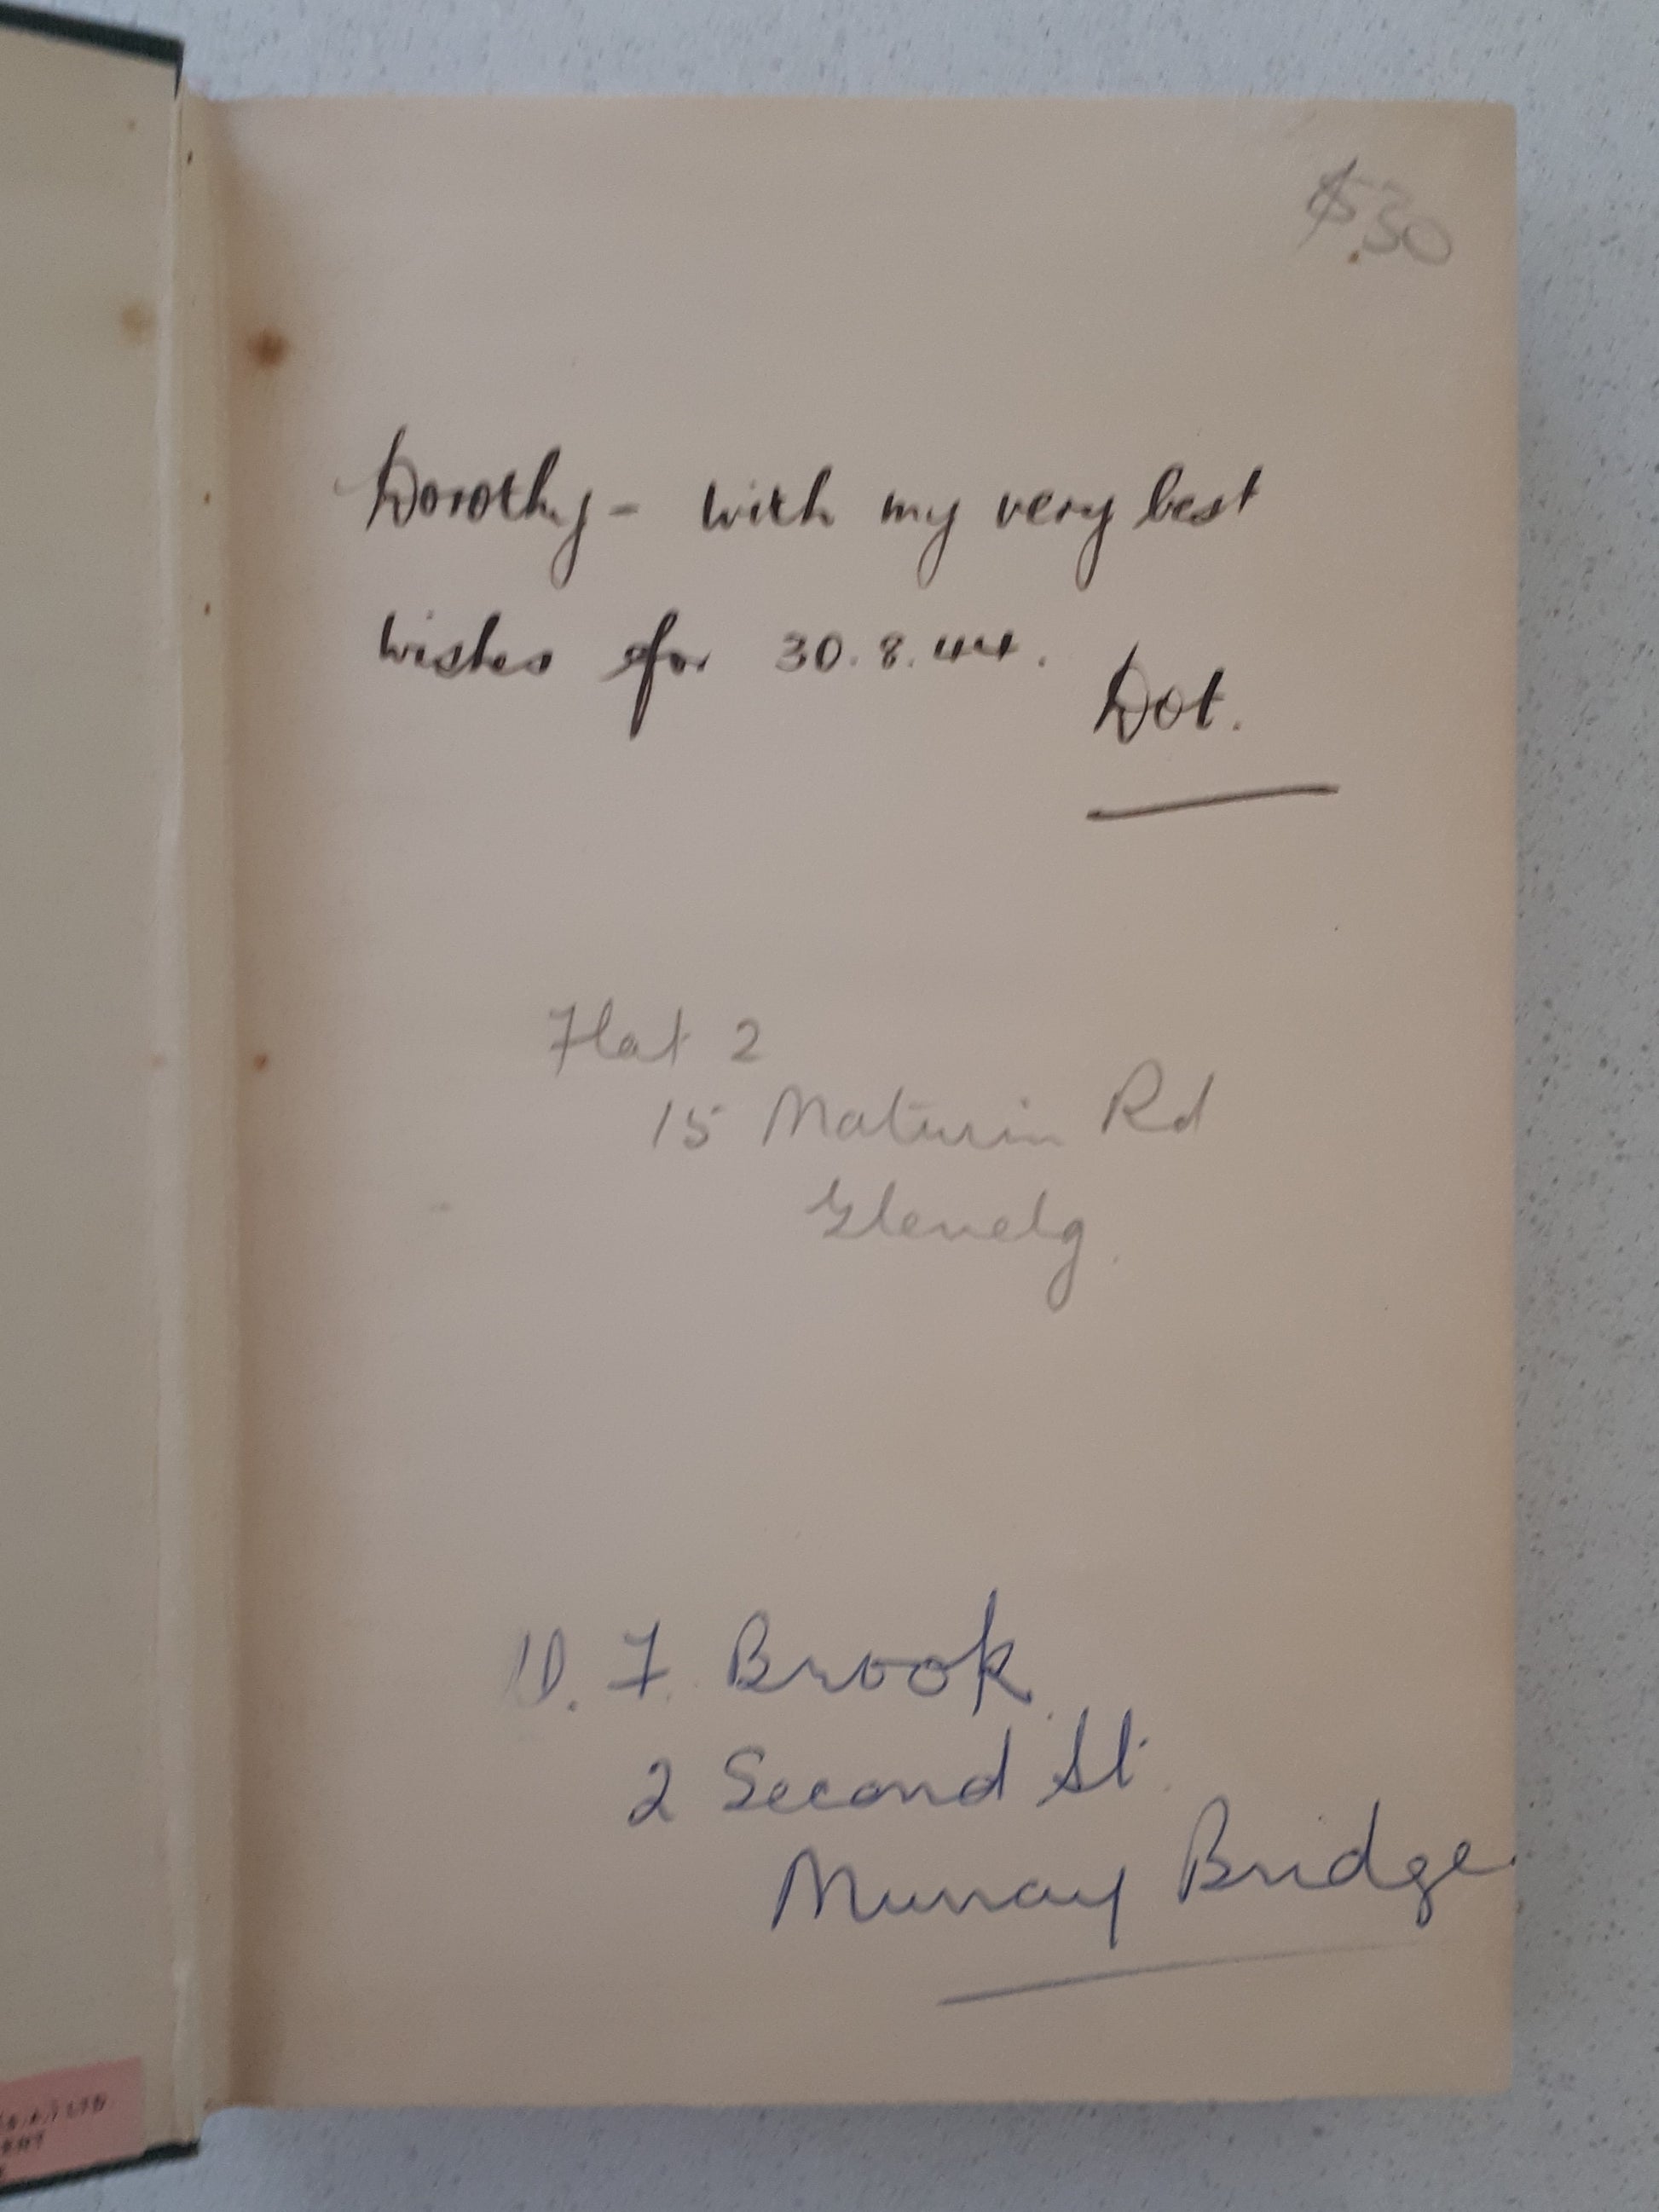 $30
Dorothy - with my very best
wishes for 30.8.44.
Dot.
Flat 2
15 Maturin Rd
Glenelg.
D. F. Brook.
2 Second St.
Murray Bridge.
LTD.